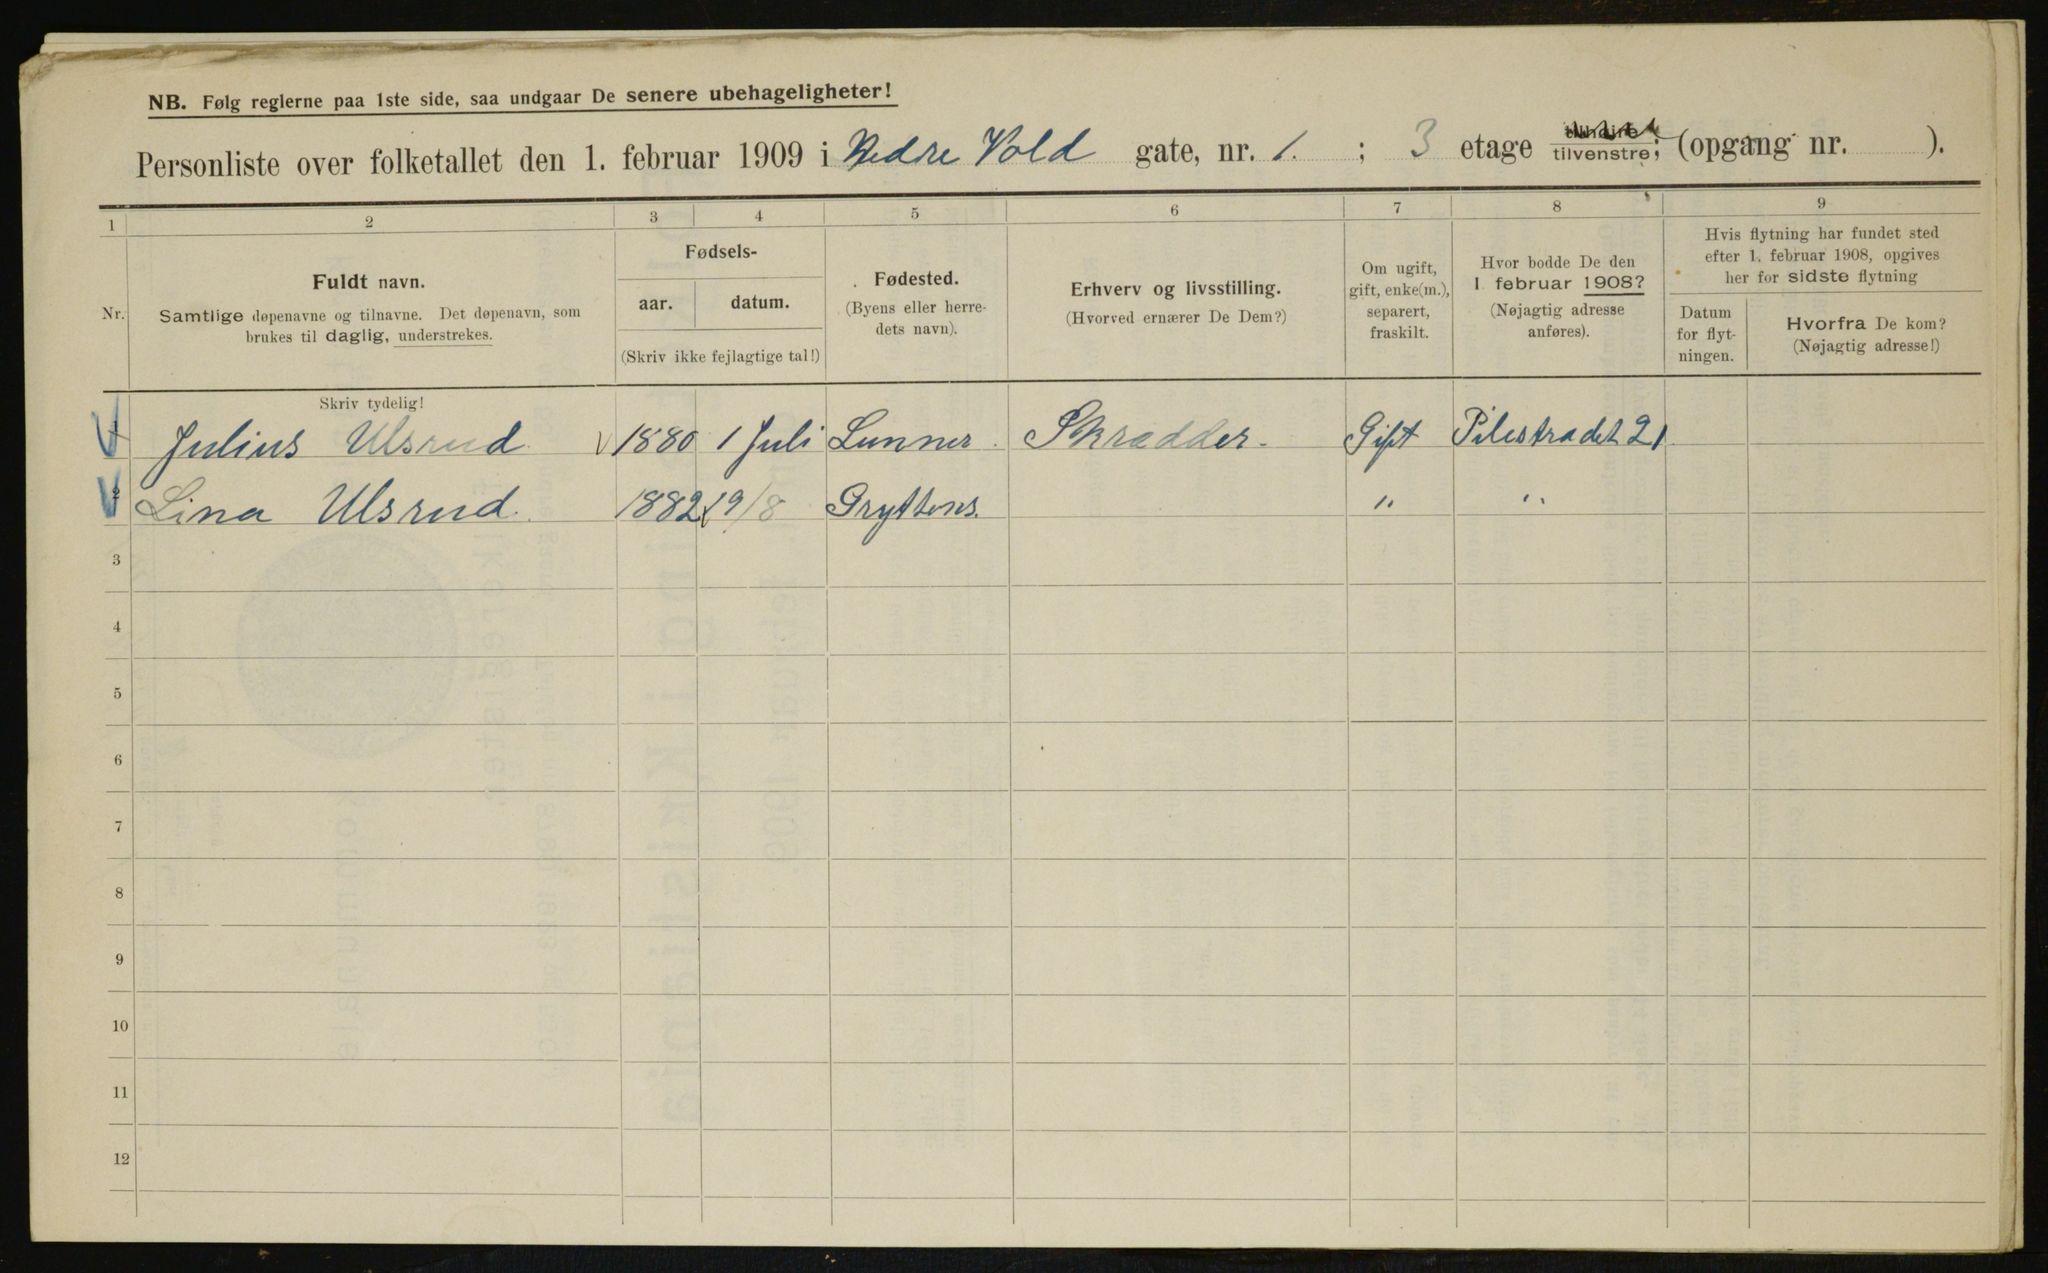 NB. Følg reglerne paa 1ste side, saa undgaar De senere ubehageligheter!
Personliste over folketallet den 1. februar 1909 i Nedre Vold gate, nr. 1. ; 3 etage tilhøire tilvenstre; (opgang nr. ).
1 2 3 4 5 6 7 8 9
Nr.
Fuldt navn.
Samtlige døpenavne og tilnavne. Det døpenavn, som
brukes til daglig, understrekes.
Fødsels-
aar. datum.
(Skriv ikke fejlagtige tal!)
Fødested.
(Byens eller herre-
dets navn).
Erhverv og livsstilling.
(Hvorved ernærer De Dem?)
Om ugift,
gift, enke(m.),
separert,
fraskilt.
Hvor bodde De den
1. februar 1908?
(Nøjagtig adresse
anføres).
Hvis flytning har fundet sted
efter 1. februar 1908, opgives
her for sidste flytning
Datum
for flyt-
ningen.
Hvorfra De kom?
(Nøjagtig adresse!)
Skriv tydelig!
1 Julius Ulsrud 1880 1 Juli Lunner Skrædder Gift Pilestradet 21
2 Lina Ulsrud 1882 19/8 Gryttens. " "
3
4
5
6
7
8
9
10
11
12